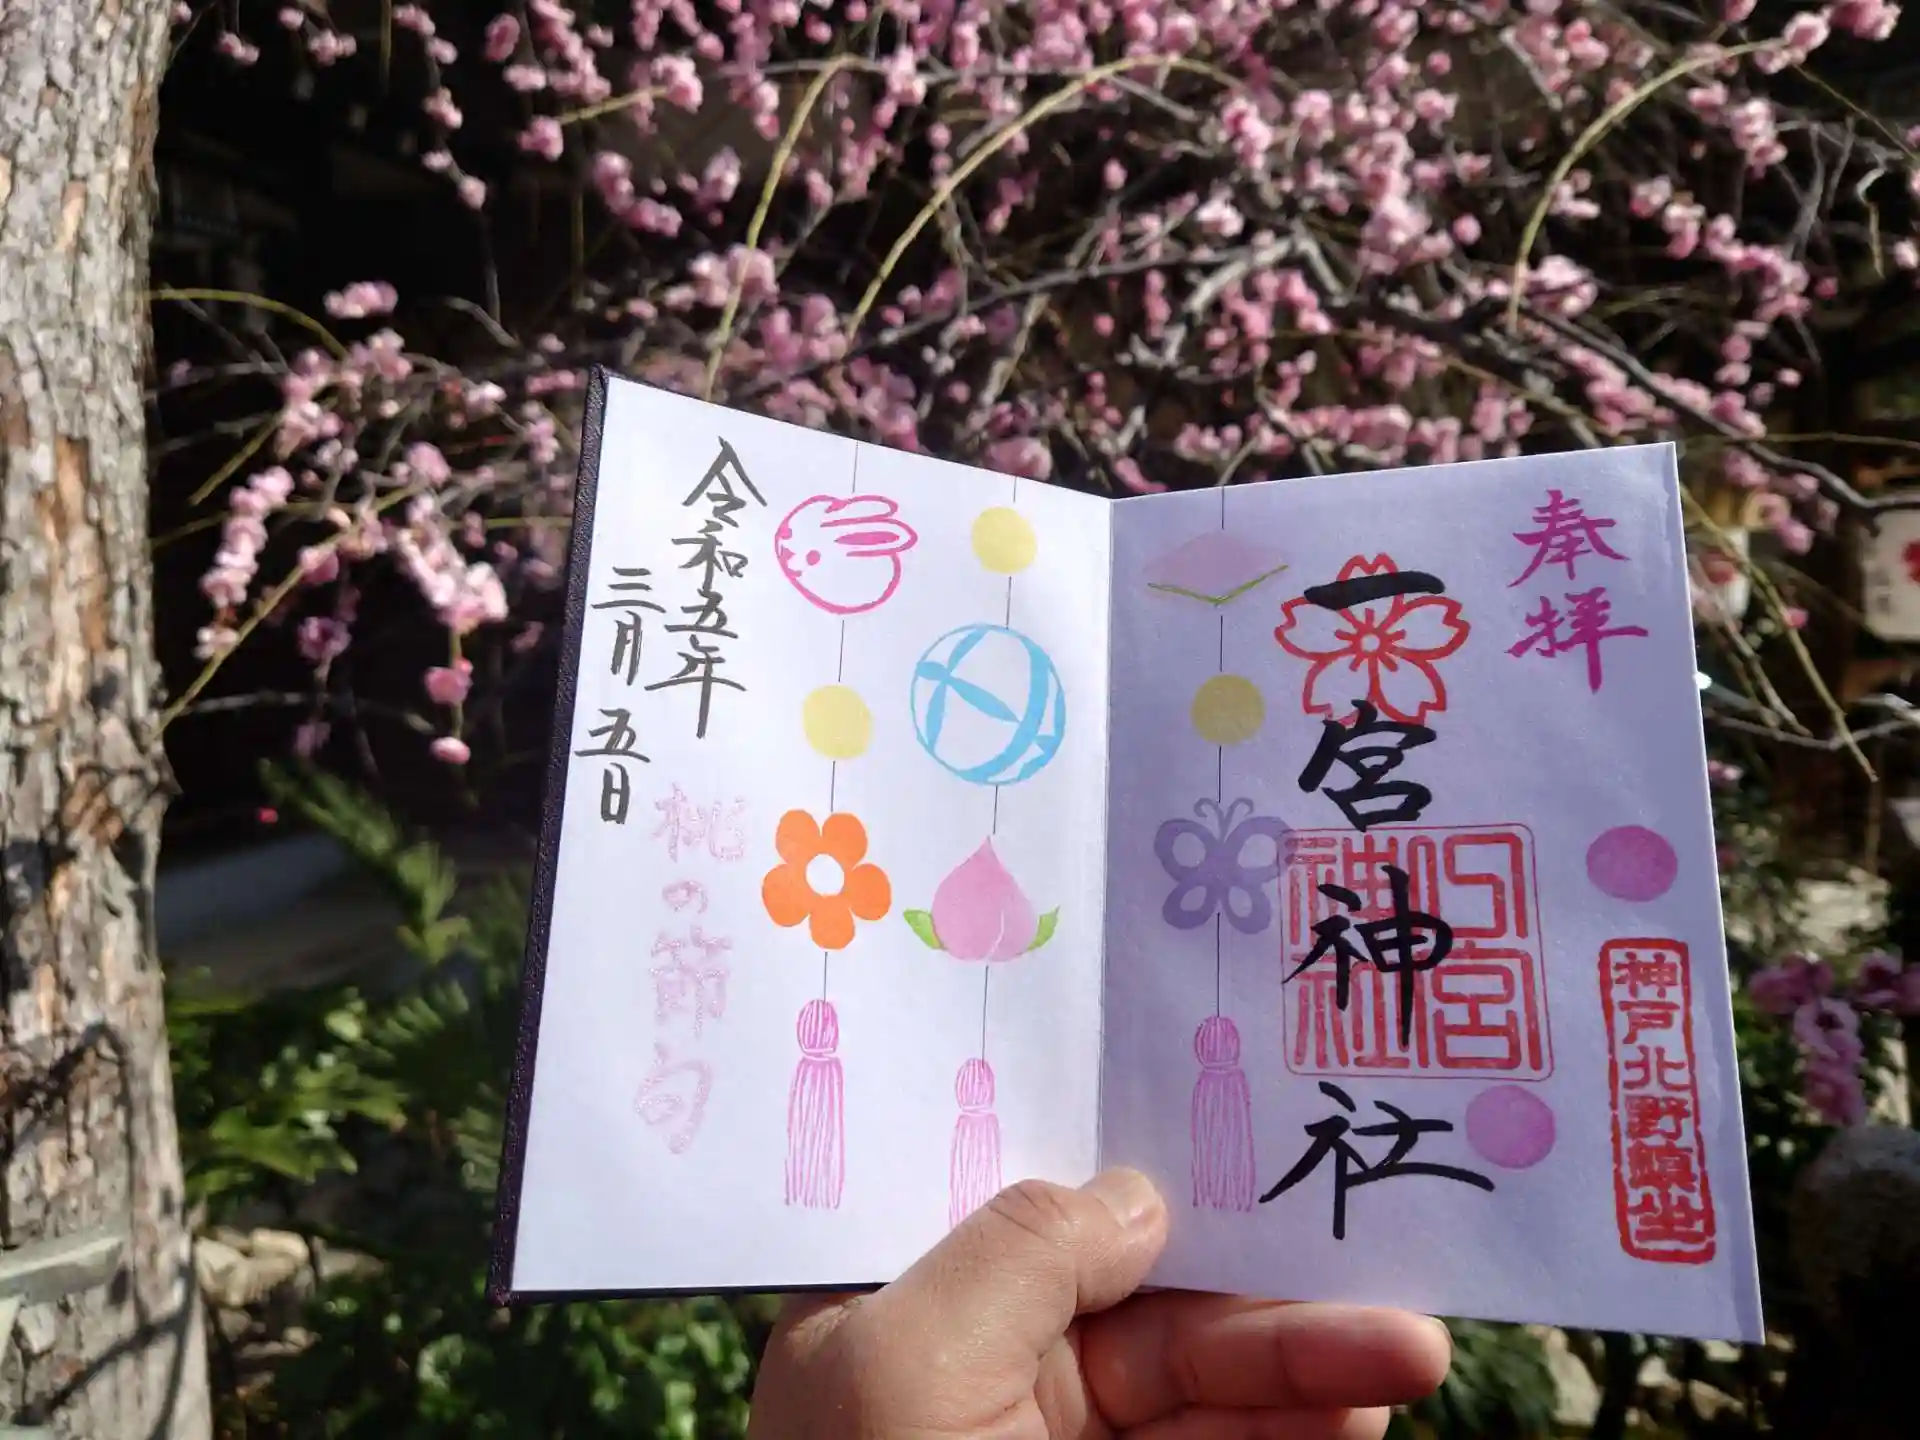 奉拝
一宮神社
一宮神社
神戸北野鎮坐
令和五年
三月五日
桃の節句